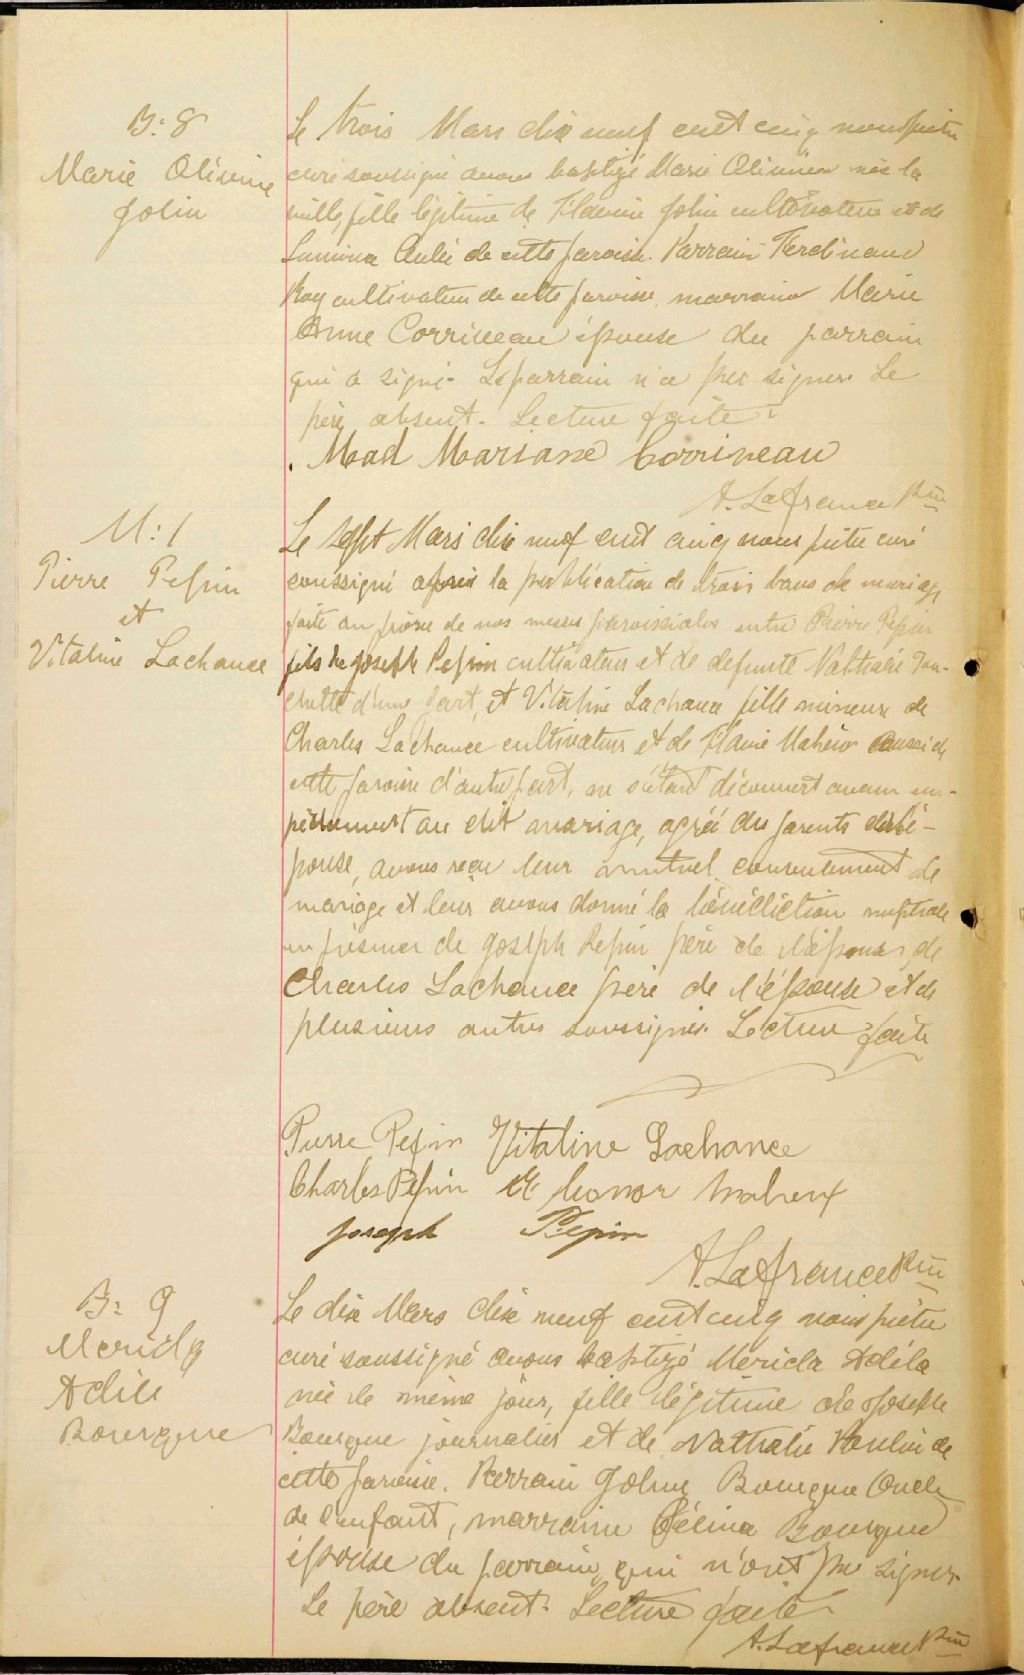 B: 8
Marie Olivine
Jolin
Le trois Mars dix neuf cent cinq nous prêtre
curé soussigné avons baptizé Marie Olivine née la
veille, fille légitime de Flavien Jolin cultivateur et de
de cette paroisse. Parrain Ferdinand
Roy cultivateur de cette paroisse, marraine Marie
Anne Corriveau épouse du parrain
qui a signé. Le parrain n'a pu signer. Le
père absent. Lecture faite.
Mad Mariane Corriveau
A. Lafrance Ptre
M: 1
Pierre Pepin
et
Vitaline Lachance
Le sept Mars dix neuf cent cinq nous prêtre curé
soussigné après la publication de trois bans de mariage
faite au prône de nos messes paroissiales entre Pierre Pepin
fils de Joseph Pepin cultivateur et de defunte Nathalie
d'une part, et Vitaline Lachance fille mineure de
Charles Lachance cultivateur et de Maheux aussi de
cette paroisse d'autre part, ne s'étant découvert aucun em-
pêchement au dit mariage, agréé des parents de l'é-
pouse, avons reçu leur mutuel consentement de
mariage et leur avons donné la bénédiction nuptiale
en présence de Joseph Pepin père de l'époux, de
Charles Lachance père de l'épouse et de
plusieurs autres soussignés. Lecture faite
Pierre Pepin Vitaline Lachance
Charles Pepin Maheux
Joseph Pepin
A. Lafrance Ptre
B: 9
Merida
Adile
Bourque
Le dix Mars dix neuf cent cinq nous prêtre
curé soussigné avons baptizé Merida Adéla
née le même jour, fille légitime de Joseph
Bourque journalier et de Nathalie Poulin de
cette paroisse. Parrain Bourque Oncle
de l'enfant, marraine Célina Bourque
épouse du parrain, qui n'ont pu signer.
Le père absent. Lecture faite.
A. Lafrance Ptre